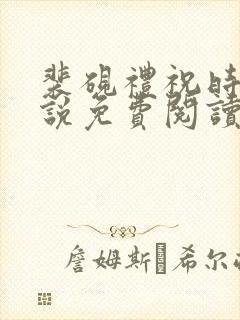 裴硯禮祝時
說免費閱讀
詹姆斯·希尔